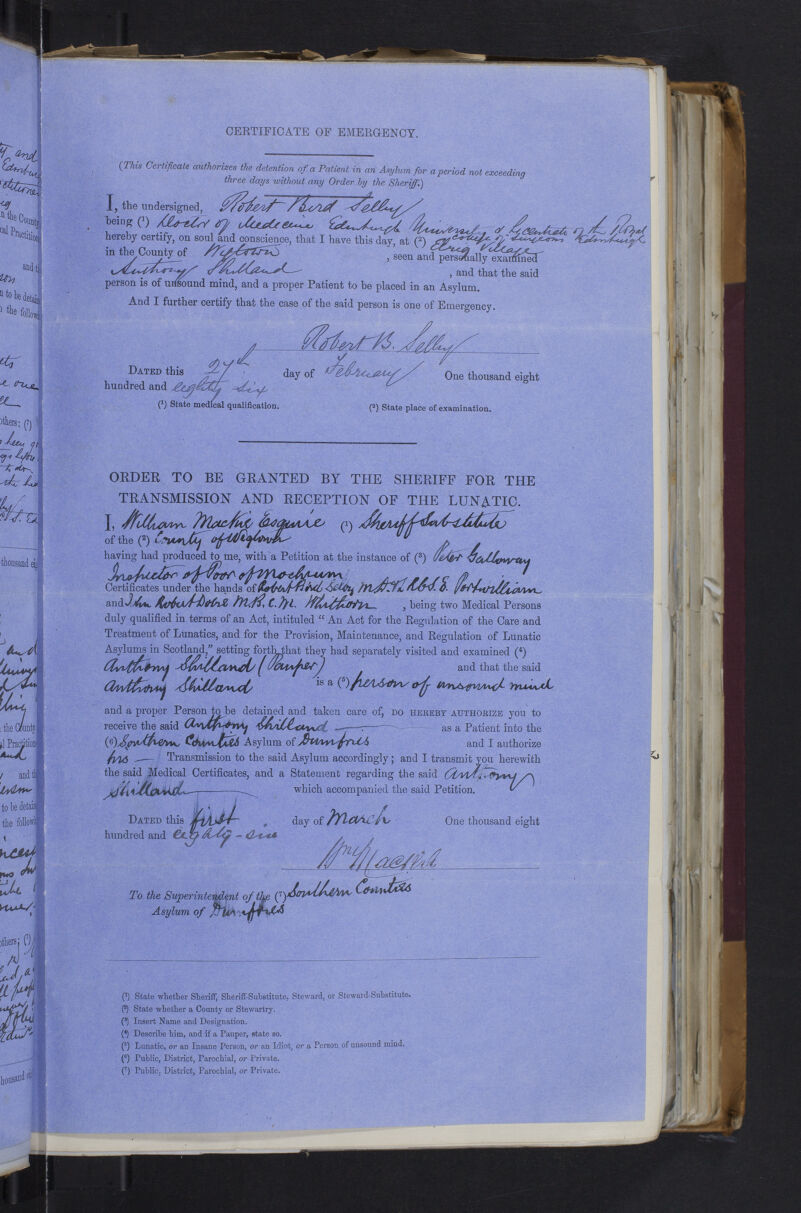 CERTIFICATE OF EMERGENCY.
(This Certificate authorizes the detention of a Patient in an Asylum for a period not exceeding
three days without any Order by the Sheriff.)
I, the undersigned, Robert Bird Selby
being (¹) Doctor of Medecine Edinburgh University & Licentiate of the Royal
College of Surgeons Edinburgh
hereby certify, on soul and conscience, that I have this day, at (²) Elrig Village
in the County of Wigtown , seen and personally examined
Anthony Shilland , and that the said
person is of unsound mind, and a proper Patient to be placed in an Asylum.
And I further certify that the case of the said person is one of Emergency.
Robert B. Selby
DATED this 27th day of February One thousand eight
hundred and eighty six
(¹) State medical qualification. (²) State place of examination.
ORDER TO BE GRANTED BY THE SHERIFF FOR THE
TRANSMISSION AND RECEPTION OF THE LUNATIC.
I, William Mackie Esquire (¹) Sheriff Substitute
of the (²) County of Wigtown
having had produced to me, with a Petition at the instance of (³) Peter Galloway
Inspector of Poor of Mochrum
Certificates under the hands of Robert Bird Selby M.D. & L.R.C.S.E. Portwilliam
and John Robert Dobie M.B. C.M. Whithorn , being two Medical Persons
duly qualified in terms of an Act, intituled “ An Act for the Regulation of the Care and
Treatment of Lunatics, and for the Provision, Maintenance, and Regulation of Lunatic
Asylums in Scotland,” setting forth that they had separately visited and examined (⁴)
Anthony Shilland (Pauper) and that the said
Anthony Shilland is a (⁵) person of unsound mind
and a proper Person to be detained and taken care of, DO HEREBY AUTHORIZE you to
receive the said Anthony Shilland as a Patient into the
(⁶) Southern Counties Asylum of Dumfries and I authorize
his Transmission to the said Asylum accordingly; and I transmit you herewith
the said Medical Certificates, and a Statement regarding the said Anthony
Shilland which accompanied the said Petition.
DATED this first day of March One thousand eight
hundred and eighty-six
Wm Mackie
To the Superintendent of the (⁷) Southern Counties
Asylum of Dumfries
(¹) State whether Sheriff, Sheriff-Substitute, Steward, or Steward-Substitute.
(²) State whether a County or Stewartry.
(³) Insert Name and Designation.
(⁴) Describe him, and if a Pauper, state so.
(⁵) Lunatic, or an Insane Person, or an Idiot, or a Person of unsound mind.
(⁶) Public, District, Parochial, or Private.
(⁷) Public, District, Parochial, or Private.